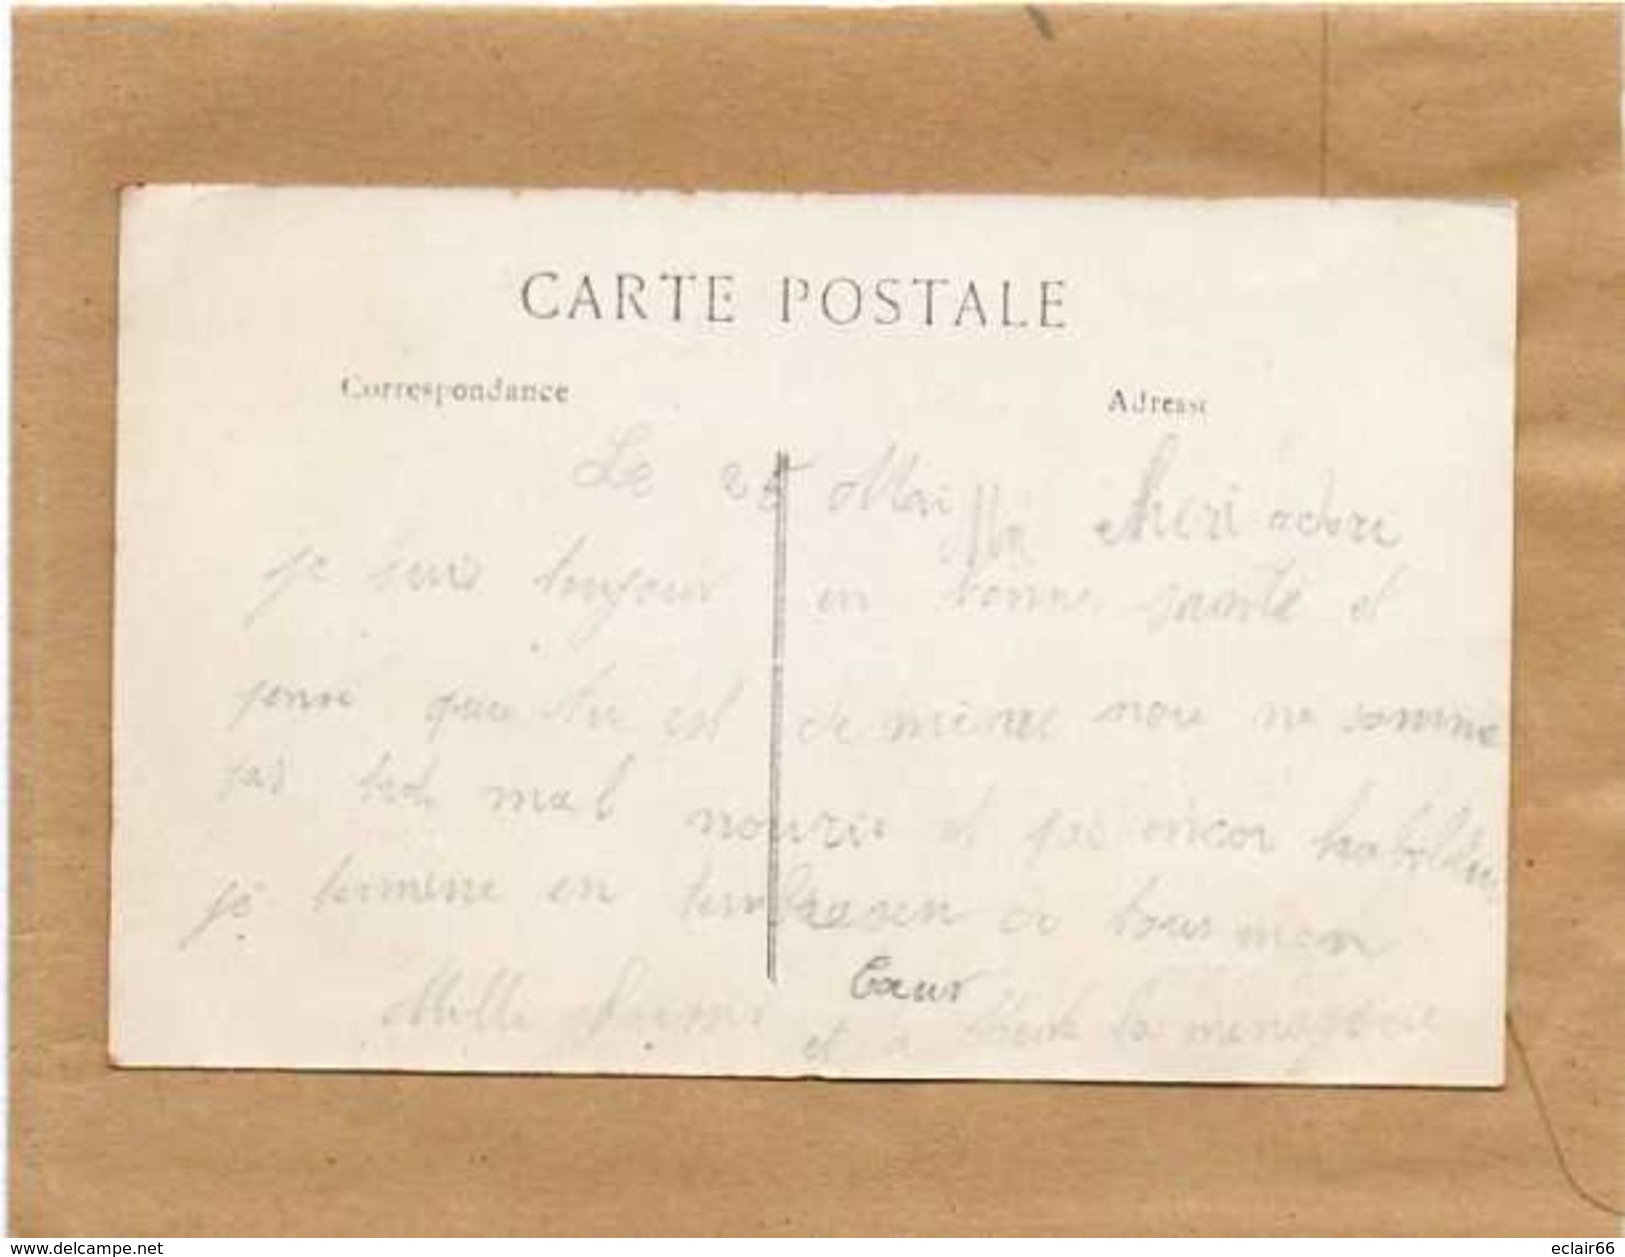 CARTE POSTALE
Correspondance
Adresse
Le 25 Mai
Ma Cheri adoré
je suis toujour en bonne santé et
pense que tu est de meme nou ne somme
pas trot mal nourie et pas encor habillee
je termine en tembrasen de tous mon
Cœur
Mille et a toute la menagerie
www.delcampe.net
eclair66